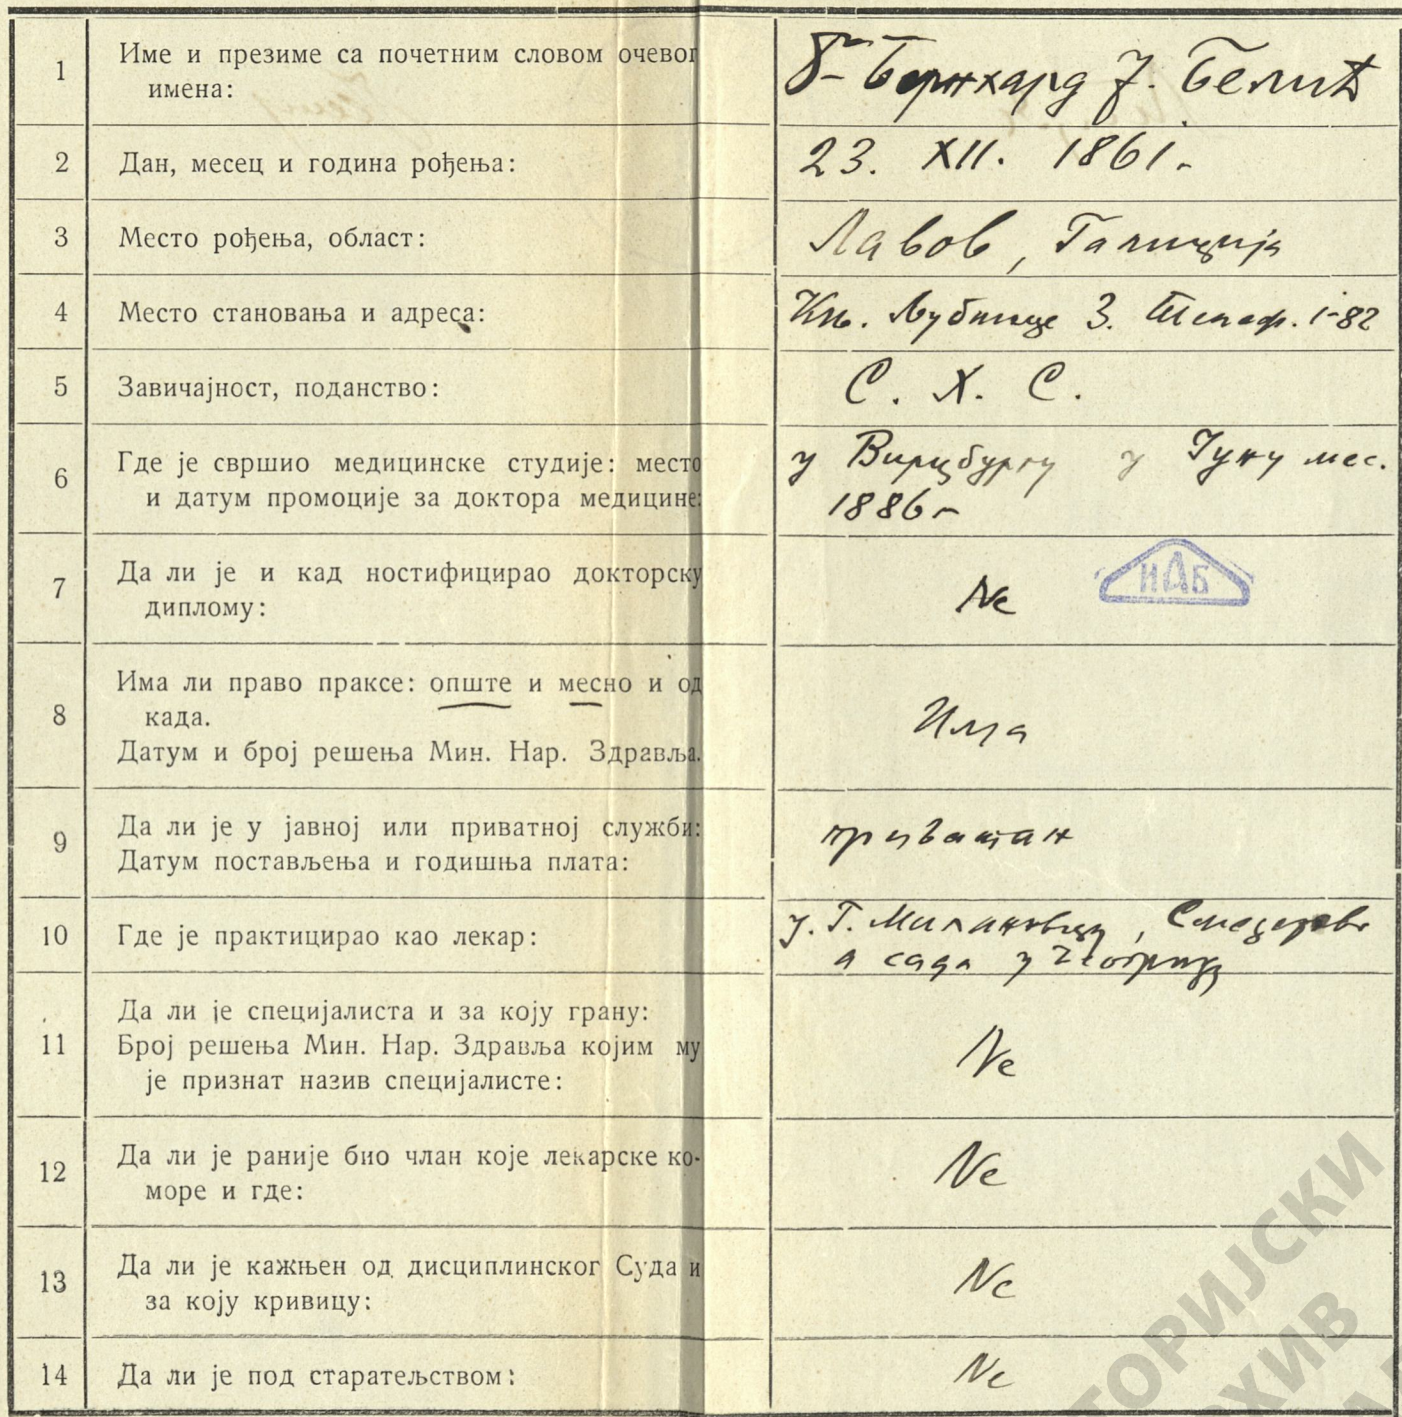 1 Име и презиме са почетним словом очевог
имена:
Др Бернхард Ј. Белић
2 Дан, месец и година рођења:
23. XII. 1861.
3 Место рођења, област:
Лавов, Галиција
4 Место становања и адреса:
Књ. Љубице 3. Телеф. 1-82
5 Завичајност, поданство:
С. Х. С.
6 Где је свршио медицинске студије: место
и датум промоције за доктора медицине:
у Вирцбургу у Јуну мес.
1886
7 Да ли је и кад ностифицирао докторску
диплому:
Ne
НАБ
8 Има ли право праксе: опште и месно и од
када.
Датум и број решења Мин. Нар. Здравља.
Има
9 Да ли је у јавној или приватној служби:
Датум постављења и годишња плата:
приватан
10 Где је практицирао као лекар:
у Г. Милановцу, Смедереву
а сада у Београду
11 Да ли је специјалиста и за коју грану:
Број решења Мин. Нар. Здравља којим му
је признат назив специјалисте:
Ne
12 Да ли је раније био члан које лекарске ко-
море и где:
Ne
13 Да ли је кажњен од дисциплинског Суда и
за коју кривицу:
Ne
14 Да ли је под старатељством:
Ne